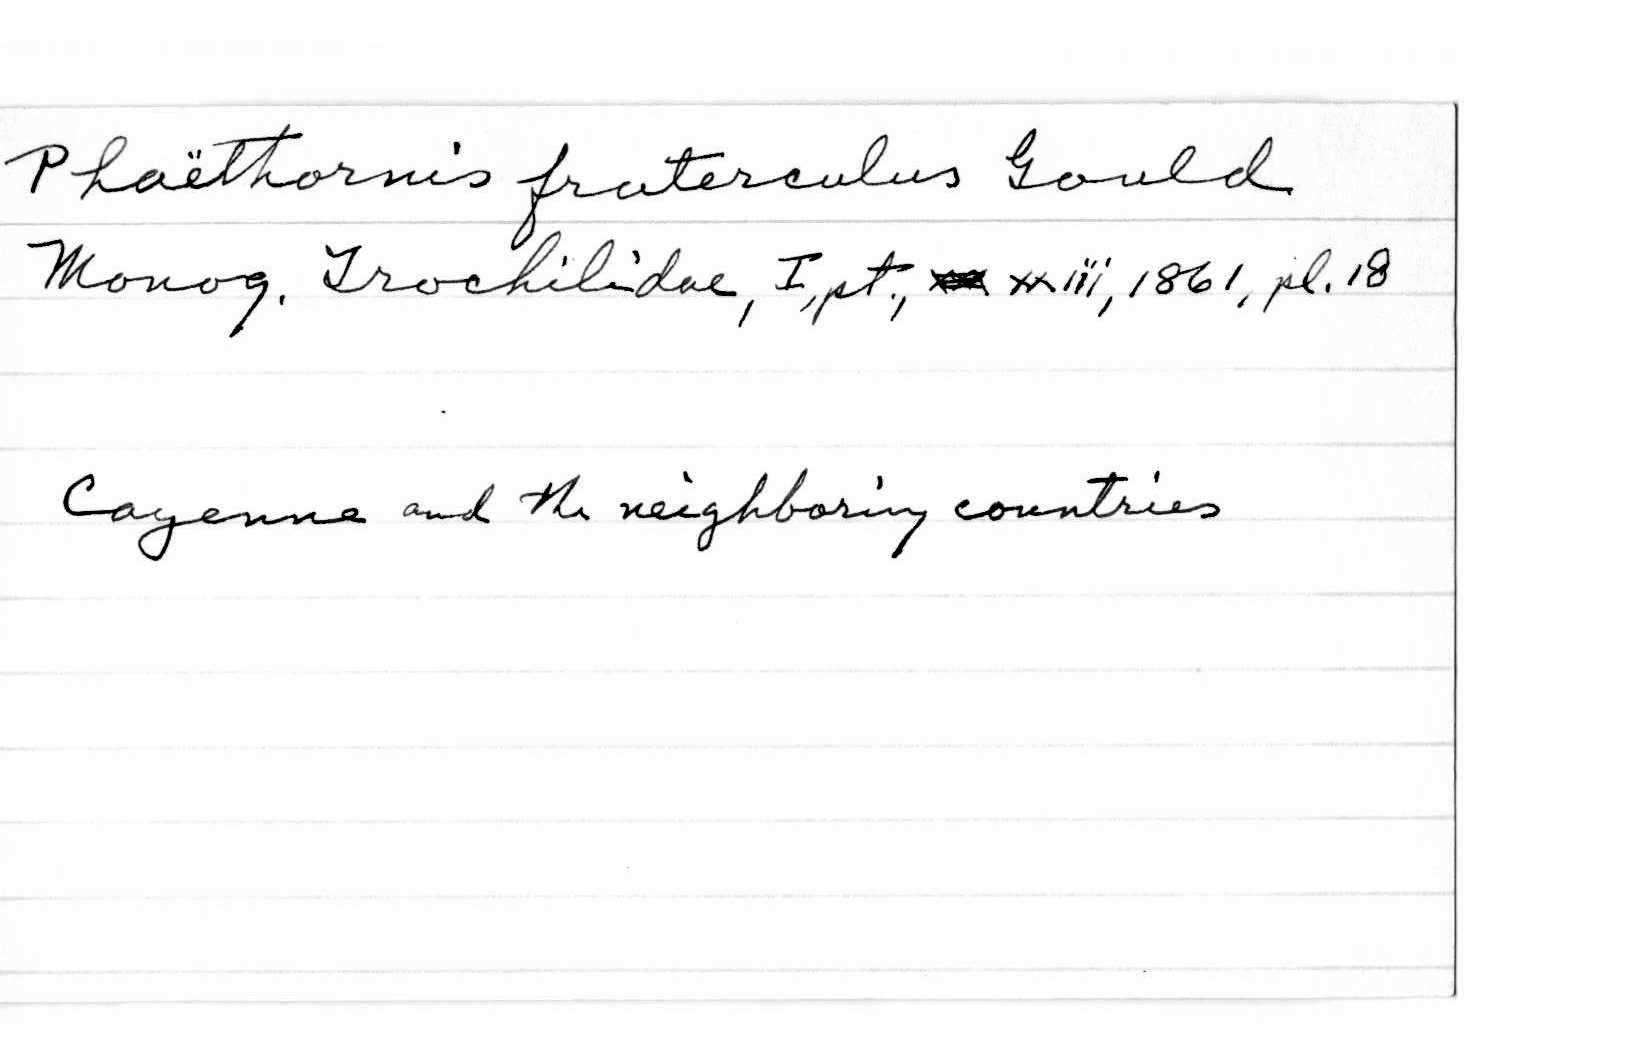 Phaëthornis fraterculus Gould
Monog. Trochilidae, I, pt., xxiii, 1861, pl. 18
Cayenne and the neighboring countries